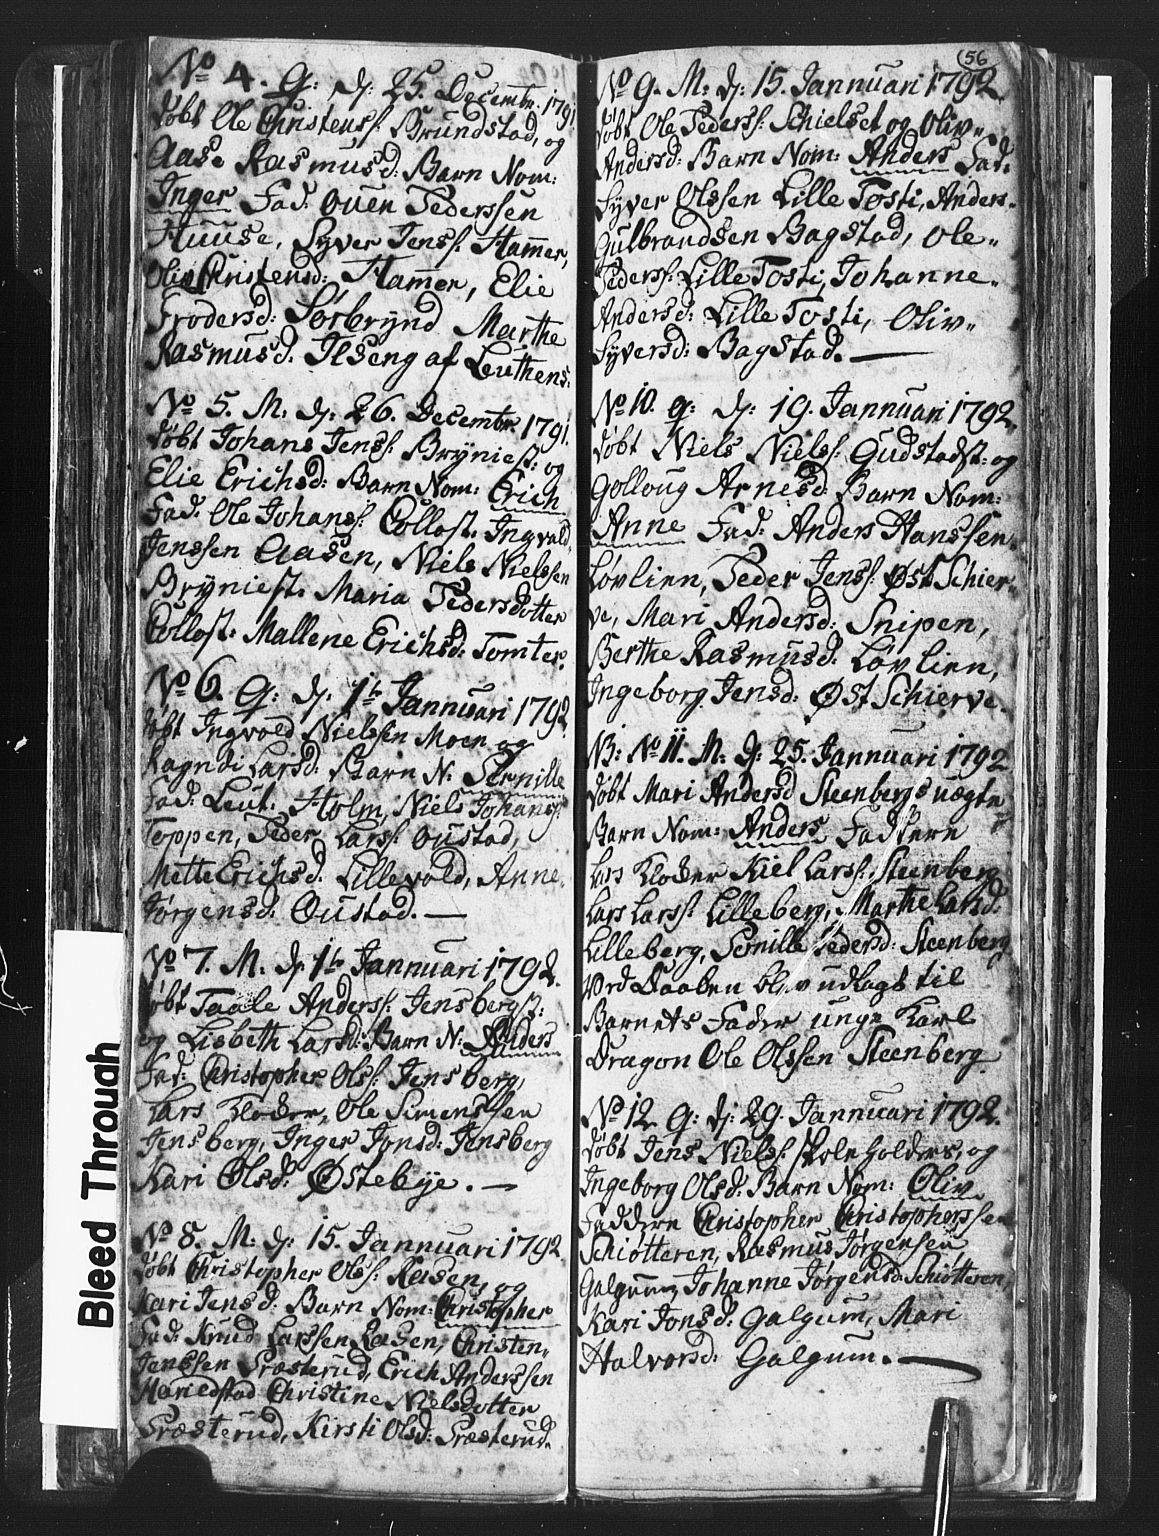 No 4. Q: dj: 25. Decembr. 1791
døbt Ole Christenss: Brundstad, og
Aase Rasmusd: Barn Nom:
Inger Fad: Ouen Pederssen
Huuse, Syver Jenss: Hamer,
Oliv Christensd: Hamer, Elie
Frodersd: Sørbrynd Marthe
Rasmusd: Ilseng af Leuthens:
No 5. M: dj: 26. Decembr 1791.
døbt Johans Jenss: Bryniest: og
Elie Erichsd: Barn Nom: Erich
Fad: Ole Johanss: Collost: Ingvold
Jenssen Aasen, Niels Nielssen
Bryniest: Maria Pedersdotter
Collost: Mallene Erichsd: Tomter.
No 6. Q: dj: 1te Jannuari 1792
døbt Ingvold Nielssen Moen og
Ragndi Larsd: Barn N: Pernille
Fad: Leut: Holm, Niels Johans:
Toppen, Peder Larss: Oustad,
Mette Erichsd: Lillevold, Anne
Jørgensd: Oustad. —
No 7. M: dj. 1te Jannuari 1792.
døbt Taale Anderss: Jensbergs:
og Lisbeth Larsd: Barn N: Anders
Fad: Christopher Olss: Jensberg,
Lars Klocker, Ole Simenssen
Jensberg, Inger Jonsd: Jensberg
Kari Olsd: Østebye. —
No 8. M: dj: 15. Jannuari 1792
døbt Christopher Olss: Raasen, og
Kari Jensd: Barn Nom: Christopher
Fad: Knud Larssen Raasen, Christen
Jenssen Præsterud, Erich Anderssen
Hariedstad Christine Nielsdotter
Præsterud, Kirsti Olsd: Præsterud.
56
No 9. M: dj: 15. Jannuari 1792.
døbt Ole Pederss: Schielset og Oliv
Andersd: Barn Nom: Anders Fad:
Syver Olssen Lille Tosti, Anders
Gulbrandsen Bagstad, Ole
Pederss: Lille Tosti, Johanne
Andersd: Lille Tosti, Oliv
Syversd: Bagstad. —
No 10. Q: dj: 19. Jannuari 1792.
døbt Niels Nielss: Gudstadst: og
Golloug Arnesd: Barn Nom:
Anne Fad: Anders Hanssen
Løvlien, Peder Jenss: Øst Schier-
ve, Mari Andersd: Snipen,
Berthe Rasmusd: Løvlien,
Ingeborg Jensd: Øst Schierve.
NB: No 11. M. dj: 25. Jannuari 1792
døbt Mari Andersd Steenbergs uægte
Barn Nom: Anders, Faddere
Lars Klocker Kiel Larss: Steenberg
Lars Larss: Lilleberg, Marthe Larsd:
Lilleberg, Pernille Pedersd: Steenberg
Ved Daaben blev udlagt til
Barnets Fader unge Karl
Dragon Ole Olssen Steenberg
No 12. Q: dj: 29. Jannuari 1792.
døbt Jens Nielss: Skoleholders, og
Ingeborg Olsd: Barn Nom: Oliv
Faddere Christopher Christopherssen
Schiøtteren, Rasmus Jørgensen
Galgum, Johanne Jørgensd: Schiøtteren,
Kari Jonsd: Galgum, Mari
Halvorsd: Galgum. —
Bleed Through